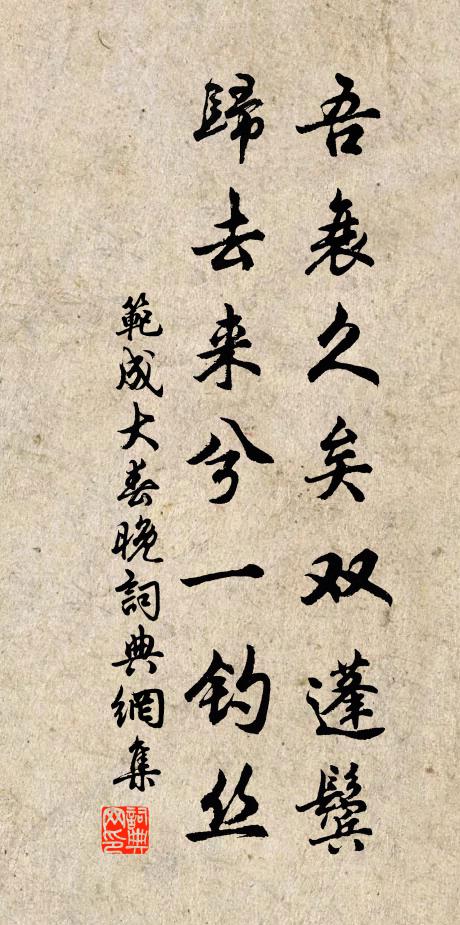 吾衰久矣双蓬鬓
歸去来兮一钓丝
範成大春晚詞典網集
詞典网印